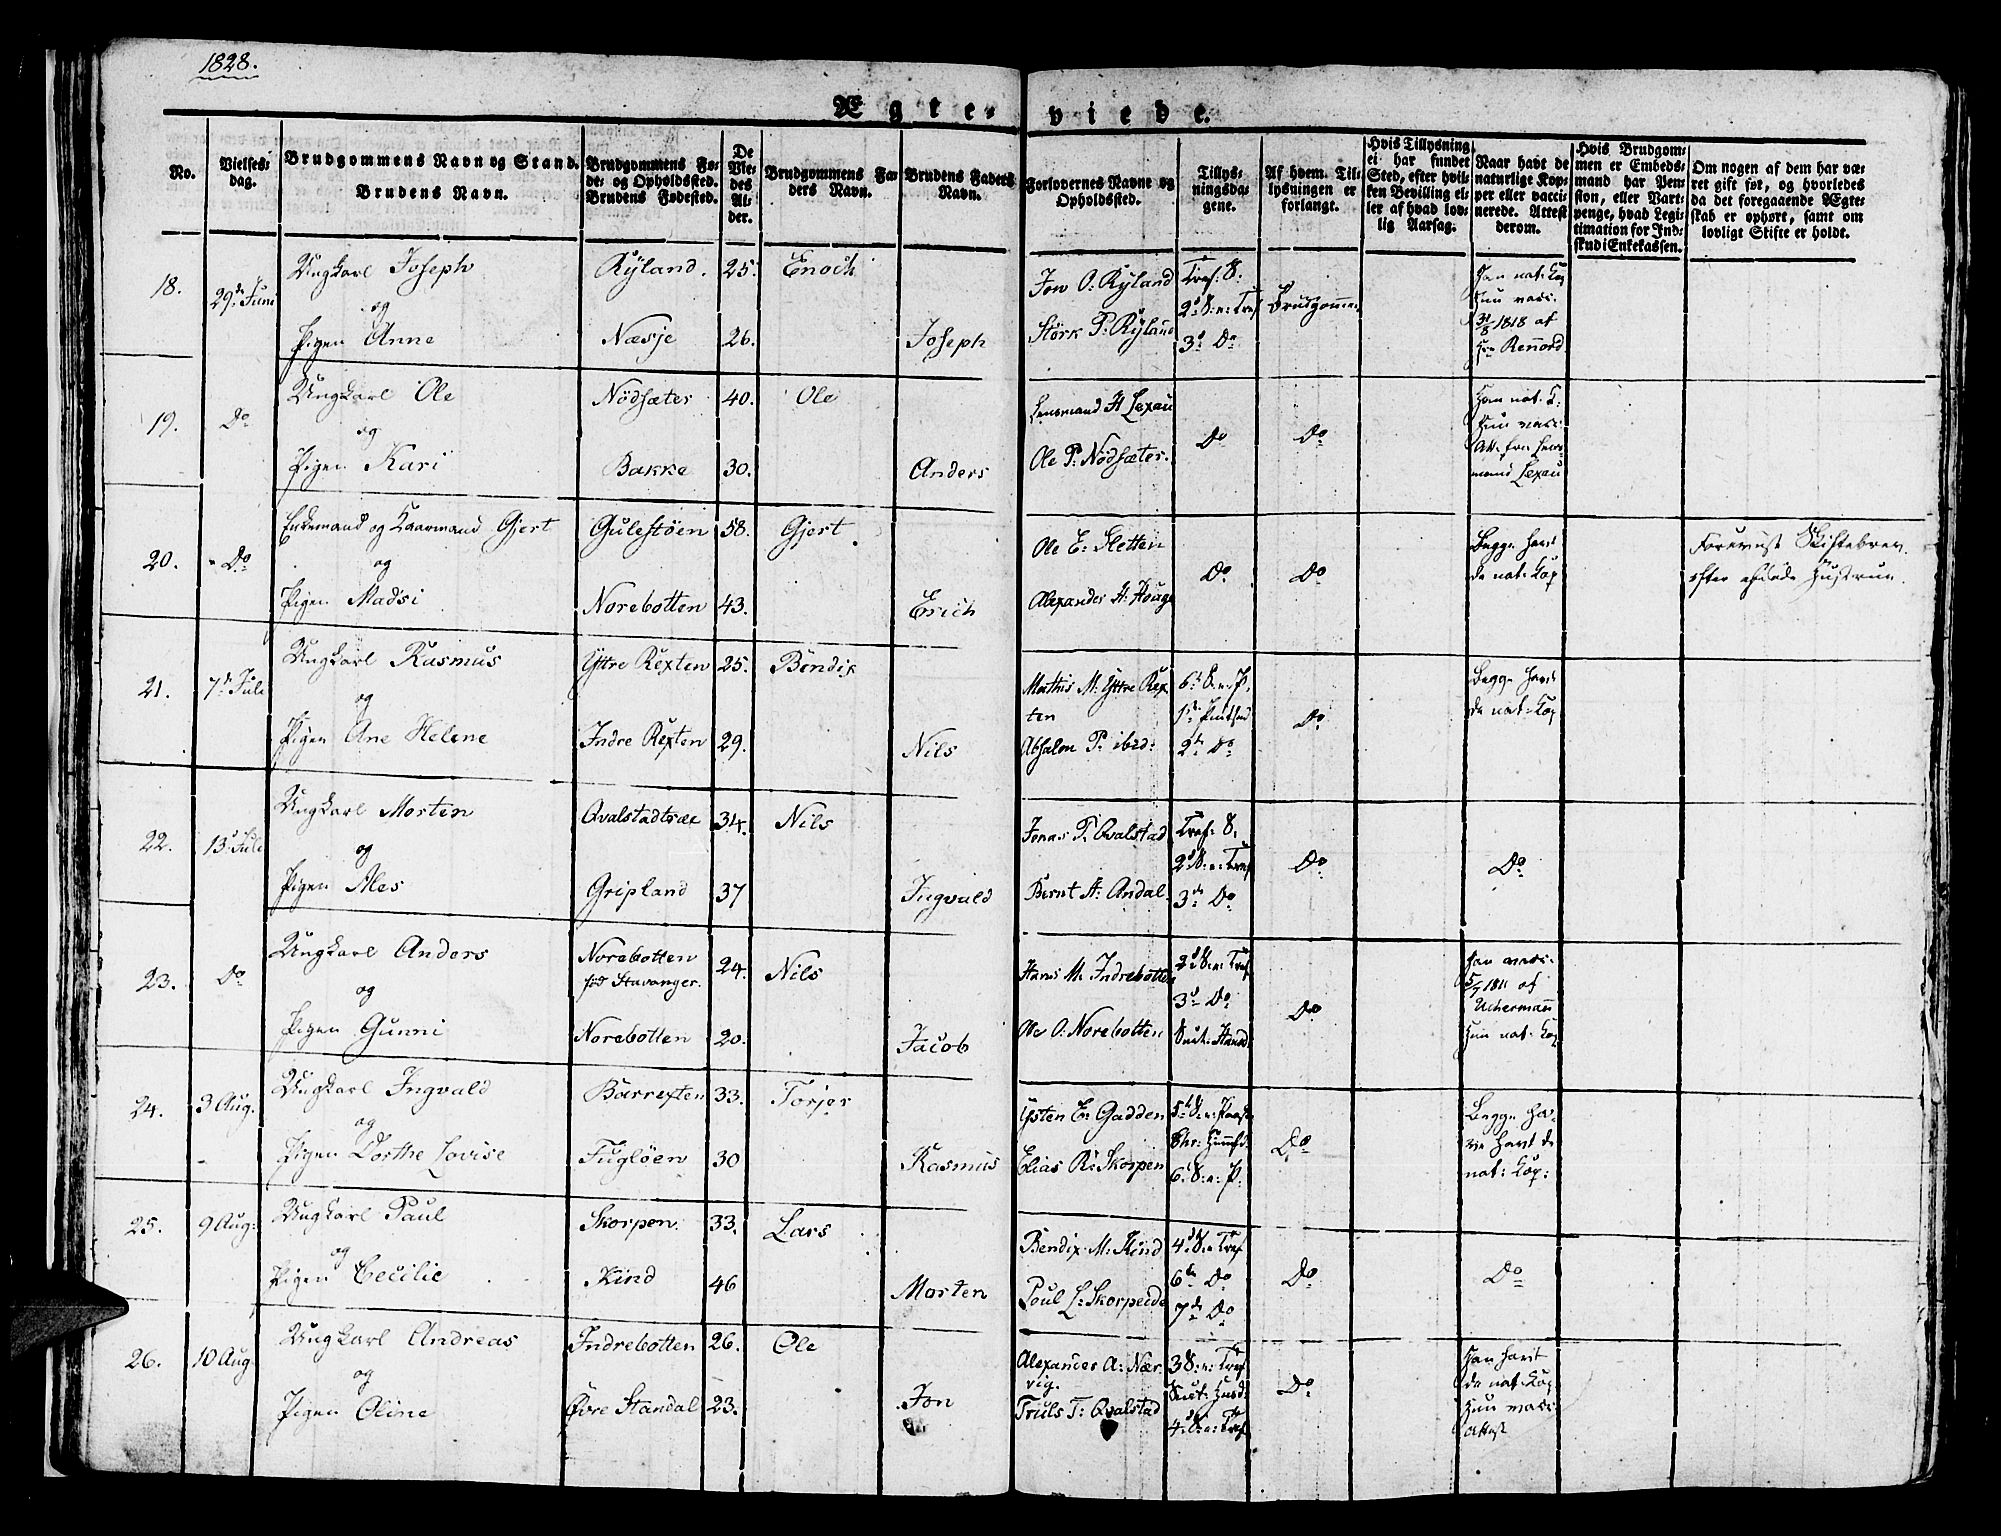 1828.
Ægte- viede.
No.
Vielses-
dag.
Brudgommens Navn og Stand.
Brudens Navn.
Brudgommens Fø-
de- og Opholdssted.
Brudens Fødested.
De
Vie-
des
Al-
der.
Brudgommens Fa-
ders Navn.
Brudens Faders
Navn.
Forlovernes Navne og
Opholdssted.
Tillys-
ningsda-
gene.
Af hvem Til-
lysningen er
forlangt.
Hvis Tillysning
ei har fundet
Sted, efter hvil-
ken Bevilling el-
ler af hvad lov-
lig Aarsag.
Naar havt de
naturlige Kop-
per eller vacci-
nerede. Attest
derom.
Hvis Brudgom-
men er Embeds-
mand har Pen-
sion, eller Vart-
penge, hvad Legi-
timation for Ind-
skud i Enkekassen.
Om nogen af dem har væ-
ret gift før, og hvorledes
da det foregaaende Ægte-
skab er ophørt, samt om
lovligt Skifte er holdt.
18.
29de Juni
Ungkarl Joseph
og
Pigen Anne
Ryland.
Næsje
25.
26.
Enoch
Joseph
Jon O. Ryland
Störk P. Ryland
Tref. S.
2d S. e. Tref
3d Do
Brudgommen
Han nat. Kop
Hun vacc.
31/8 1818 af
Hr. Rennord
19.
Do
Ungkarl Ole
og
Pigen Kari
Nödsæter
Bakke
40.
30.
Ole
Anders
Lensmand H Lexau
Ole P. Nödsæter.
Do
Do
Han nat. K.
Hun vacc.
Att. fra Lens-
mand Lexau
20.
Do
Enkemand og Gaarmand Gjert
og
Pigen Madsi
Gulestöen
Norebotten
58.
43.
Gjert.
Erich
Ole E. Sletten
Alexander H. Houge
Do
Do
Begge havt
de nat. Kop
Foreviist Skiftebrev
efter afdöde Hustrue.
21.
7de Juli
Ungkarl Rasmus
og
Pigen Ane Helene
Yttre Rexten
Indre Rexten
25.
29.
Bendix
Nils
Mathis M. Yttre Rex
ten
Absalon P. ibid:
6te S. e. P.
1ste Pintsed
2de Do
Do
Begge havt
de nat. Kop
22.
13. Juli
Ungkarl Morten
og
Pigen Ales
Qvalstadtræe
Gripland
34.
37
Nils
Ingvald
Jonas P. Qvalstad
Bernt A. Andal.
Tref. S.
2d S. e. Tref
3de Do
Do
Do
23.
Do
Ungkarl Anders
og
Pigen Gunni
Norebotten
föd Stavanger.
Norebotten
24.
20.
Nils
Jacob
Hans M. Indrebotten
Ole O. Norebotten
2d S. e. Tref.
3d Do
Do
Han vacc.
5/7 1811 af
Uchermann
Hun nat. Kop
24.
3 Aug.
Ungkarl Ingvald
og
Pigen Dorthe Lovise
Barrexten
Fuglöen
33.
30
Torjer
Rasmus
Ysten E. Gadden
Elias R. Skorpen
5te S. e. Paas
Chr. Himmelf.
6. S. e. P.
Do
Begge ha-
ve havt de
nat. Kop.
25.
9 Aug.
Ungkarl Paul
og
Pigen Cecilie
Skorpen
Kind
33.
46
Lars
Morten
Bendix M. Kind
Poul L. Skorpeide
4d S. e. Tref
6te Do
7de Do
Do
Do
26.
10 Aug.
Ungkarl Andreas
og
Pigen Oline
Indrebotten
Övre Standal
26.
23.
Ole
Jon
Alexander A. Nær
vig.
Truls T. Qvalstad
3 S. e. Tref
4d S. e. Tref
Do
Han havt
de nat. Kop
Hun vacc.
Attest